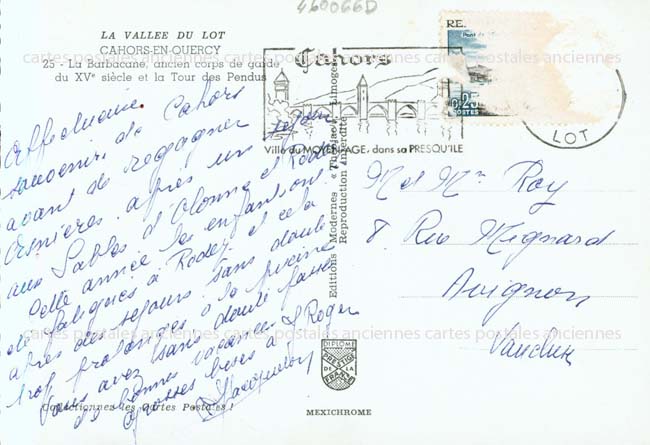 460066D
LA VALLEE DU LOT
CAHORS-EN-QUERCY
25 - La Barbacane, ancien corps de garde
du XVe siècle et la Tour des Pendus
Affectueux
souvenirs de Cahors
avant de regagner
Asnières après un séjour
aux Sables d'Olonne et Rodez
Cette année les enfants ont
été fatigués à Rodez et cela
après des séjours sans doute
trop prolongés à la piscine
Vous avez sans doute passé
de bonnes vacances.
Grosses bises à
& Roger
Jacqueline
Collectionnez les Cartes Postales !
Editions Modernes « Théojac », Limoges
Reproduction Interdite
DIPLOME
PRESTIGE
DE LA
FRANCE
MEXICHROME
Cahors
Ville du MOYEN-AGE, dans sa PRESQU'ILE
RE.
0,25
POSTES
LOT
M et Mme Roy
8, Rue Mignard
Avignon
Vaucluse
cartes postales anciennes cartes postales anciennes cartes postales anciennes
cartes postales anciennes cartes postales anciennes cartes postales anciennes